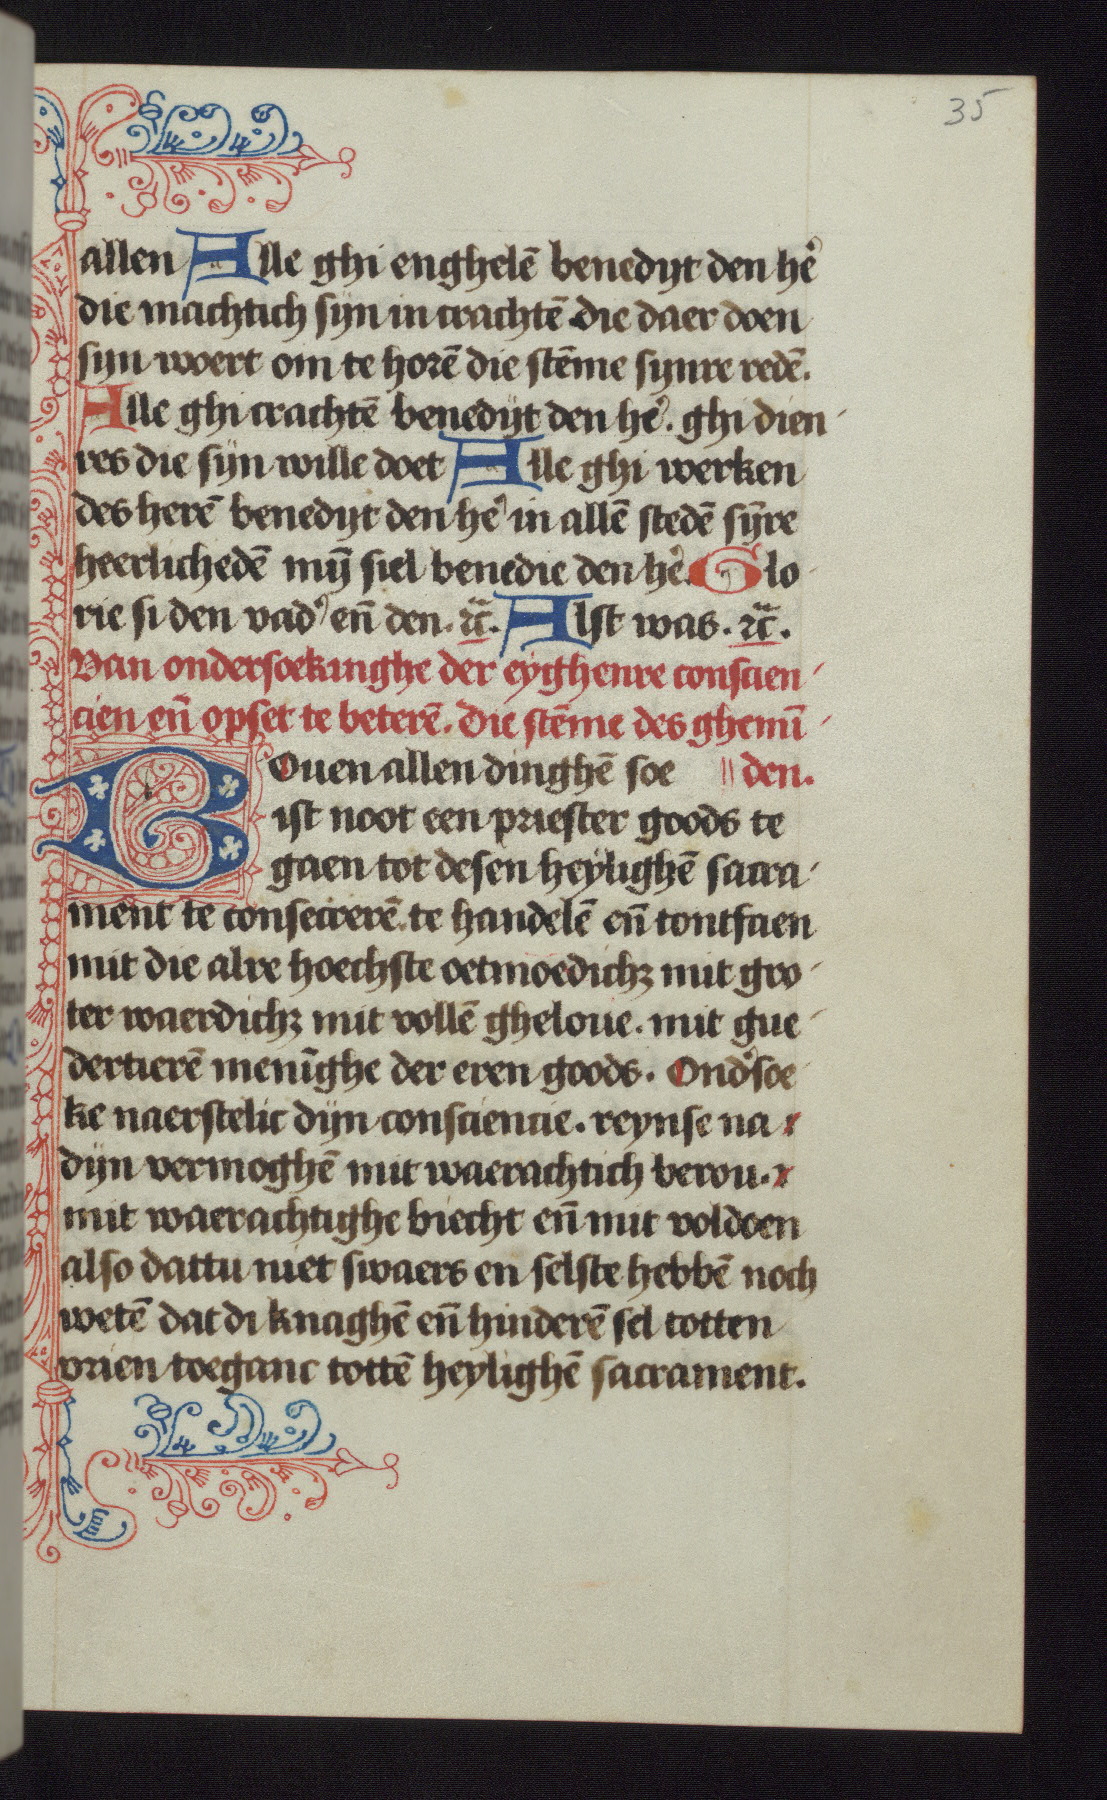 35
allen Alle ghi enghelē benedijt den hē᾽
die machtich sijn in crachtē die daer doen
sijn woert om te horē die stēme synre redē.
Alle ghi crachtē benedijt den hē᾽. ghi dien
res die sijn wille doet Alle ghi werken
des herē benedijt den hē᾽ in allē stedē sȳre
heerlichedē mȳ siel benedie den hē᾽. Glo
rie si den vad᾽ en̄ den. ⁊c̄. Alst was. ⁊c̄.
Van ondersoekinghe der eyghenre conscien
cien en̄ opset te beterē. Die stēme des ghemī
Bouen allen dinghē soe den.
ist noot een priester goods te
gaen tot desen heylighē sacra
ment te consecrerē. te handelē en̄ tontfaen
mit die alre hoechste oetmoedichꝫ mit gro
ter waerdichꝫ mit vollē gheloue. mit gue
dertierē menīghe der eren goods. Ond᾽soe
ke naerstelic dijn consciencie. reynse na
dijn vermoghē mit waerachtich berou.
mit waerachtighe biecht en̄ mit voldoen
also dattu niet swaers en selste hebbē noch
wetē dat di knaghē en̄ hinderē sel totten
vrien toeganc tottē heylighē sacrament.